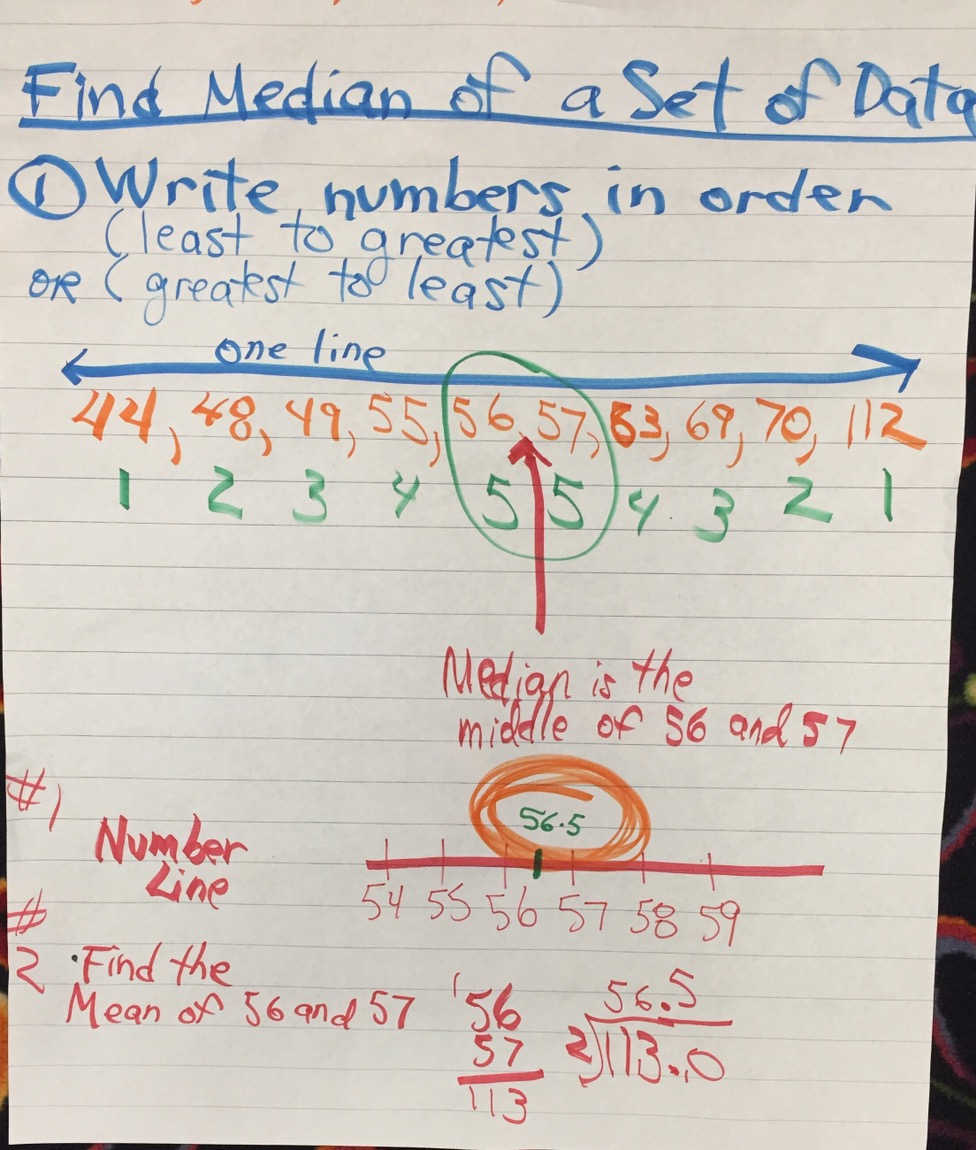 Find Median of a Set of Data
① Write numbers in order
(least to greatest)
OR (greatest to least)
one line
44, 48, 49, 55, 56, 57, 63, 69, 70, 112
1 2 3 4 5 5 4 3 2 1
Median is the
middle of 56 and 57
#1
Number
Line
56.5
54 55 56 57 58 59
#
2 · Find the
Mean of 56 and 57
1
56
57
113
56.5
2)113.0